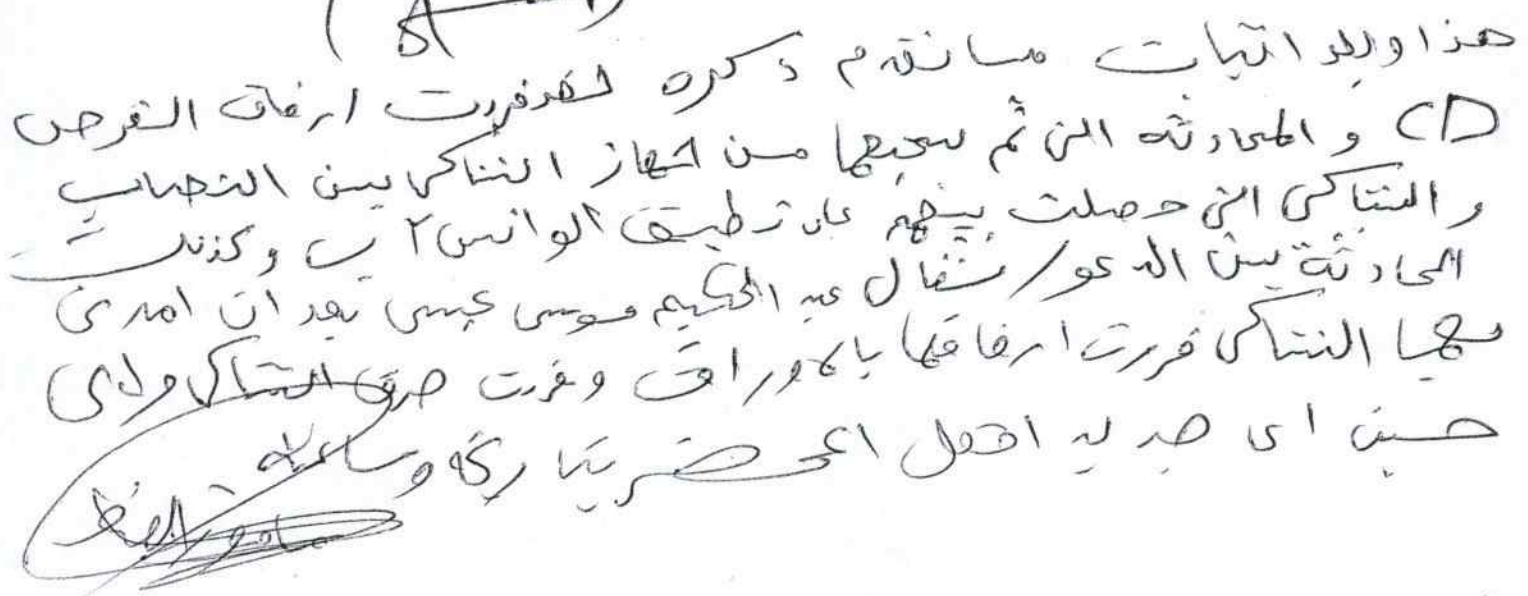 هذا وبعد اثبات ما تقدم ذكره فقد قررت ارفاق القرص
CD و المحادثه التي تم سحبها من جهاز الشاكي بين النصاب
و الشاكي التي حصلت بينهم على تطبيق الواتس اب وكذلك
المحادثة بين المدعو / عبد الحكيم موسى عيسى بعد ان امدني
بها الشاكي قررت ارفاقها بالاوراق وقررت صرف الشاكي ولدى
حين اى جديد اقفل المحضر بتاريخه وساعته
مامور الضبط